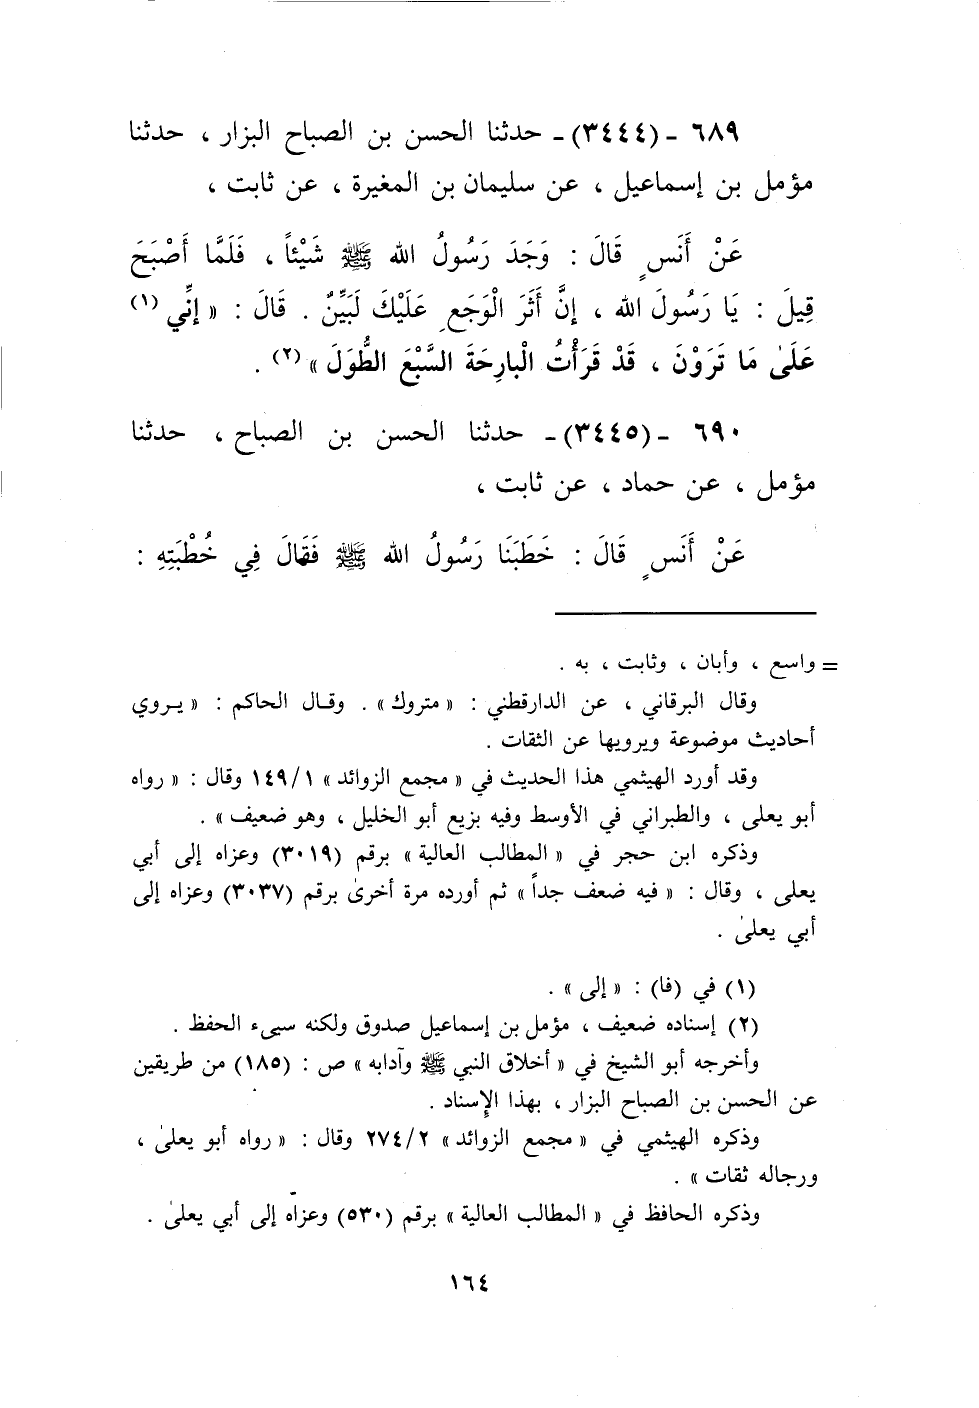 ٦٨٩ - (٣٤٤٤) - حدثنا الحسن بن الصباح البزار ، حدثنا
مؤمل بن إسماعيل ، عن سليمان بن المغيرة ، عن ثابت ،
عَنْ أَنَسٍ قَالَ : وَجَدَ رَسُولُ الله ﷺ شَيْئاً ، فَلَمَّا أَصْبَحَ
قِيلَ : يَا رَسُولَ الله ، إِنَّ أَثَرَ الْوَجَعِ عَلَيْكَ لَبَيِّنٌ . قَالَ : « إِنِّي (١)
عَلَىٰ مَا تَرَوْنَ ، قَدْ قَرَأْتُ الْبارِحَةَ السَّبْعَ الطُّوَلَ » (٢) .
٦٩٠ - (٣٤٤٥) - حدثنا الحسن بن الصباح ، حدثنا
مؤمل ، عن حماد ، عن ثابت ،
عَنْ أَنَسٍ قَالَ : خَطَبَنَا رَسُولُ الله ﷺ فَقَالَ فِي خُطْبَتِهِ :
= واسع ، وأبان ، وثابت ، به .
وقال البرقاني ، عن الدارقطني : « متروك » . وقال الحاكم : « يروي
أحاديث موضوعة ويرويها عن الثقات .
وقد أورد الهيثمي هذا الحديث في « مجمع الزوائد » ١/ ١٤٩ وقال : « رواه
أبو يعلى ، والطبراني في الأوسط وفيه بزيع أبو الخليل ، وهو ضعيف » .
وذكره ابن حجر في « المطالب العالية » برقم (٣٠١٩) وعزاه إلى أبي
يعلى ، وقال : « فيه ضعف جداً » ثم أورده مرة أخرىٰ برقم (٣٠٣٧) وعزاه إلى
أبي يعلىٰ .
(١) في (فا) : « إلى » .
(٢) إسناده ضعيف ، مؤمل بن إسماعيل صدوق ولكنه سيىء الحفظ .
وأخرجه أبو الشيخ في « أخلاق النبي ﷺ وآدابه » ص : (١٨٥) من طريقين
عن الحسن بن الصباح البزار ، بهذا الإِسناد .
وذكره الهيثمي في « مجمع الزوائد » ٢/ ٢٧٤ وقال : « رواه أبو يعلىٰ ،
ورجاله ثقات » .
وذكره الحافظ في « المطالب العالية » برقم (٥٣٠) وعزاه إلى أبي يعلىٰ .
١٦٤